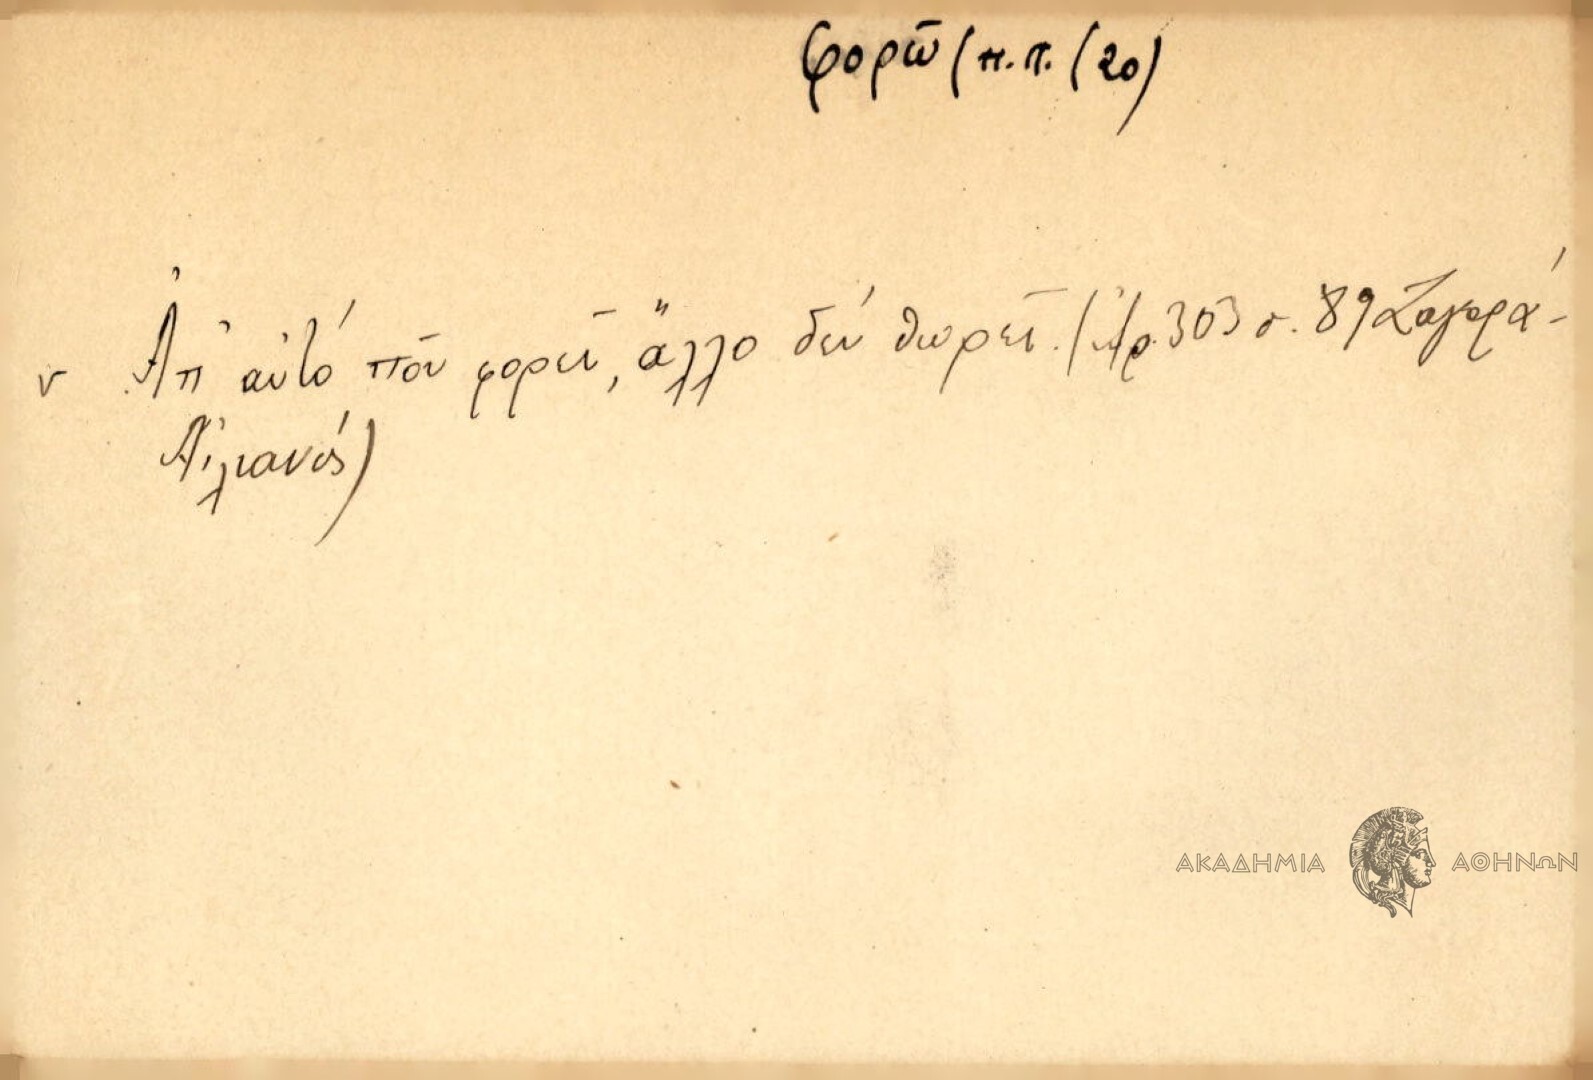 φορῶ (π.π. (20)
ν Ἀπ' αὐτό ποῦ φορεῖ, ἄλλο δέν θωρεῖ. (Ἀρ. 303 σ. 89 Ζαγορά -
Αἰλιανός)
ΑΚΑΔΗΜΙΑ ΑΘΗΝΩΝ